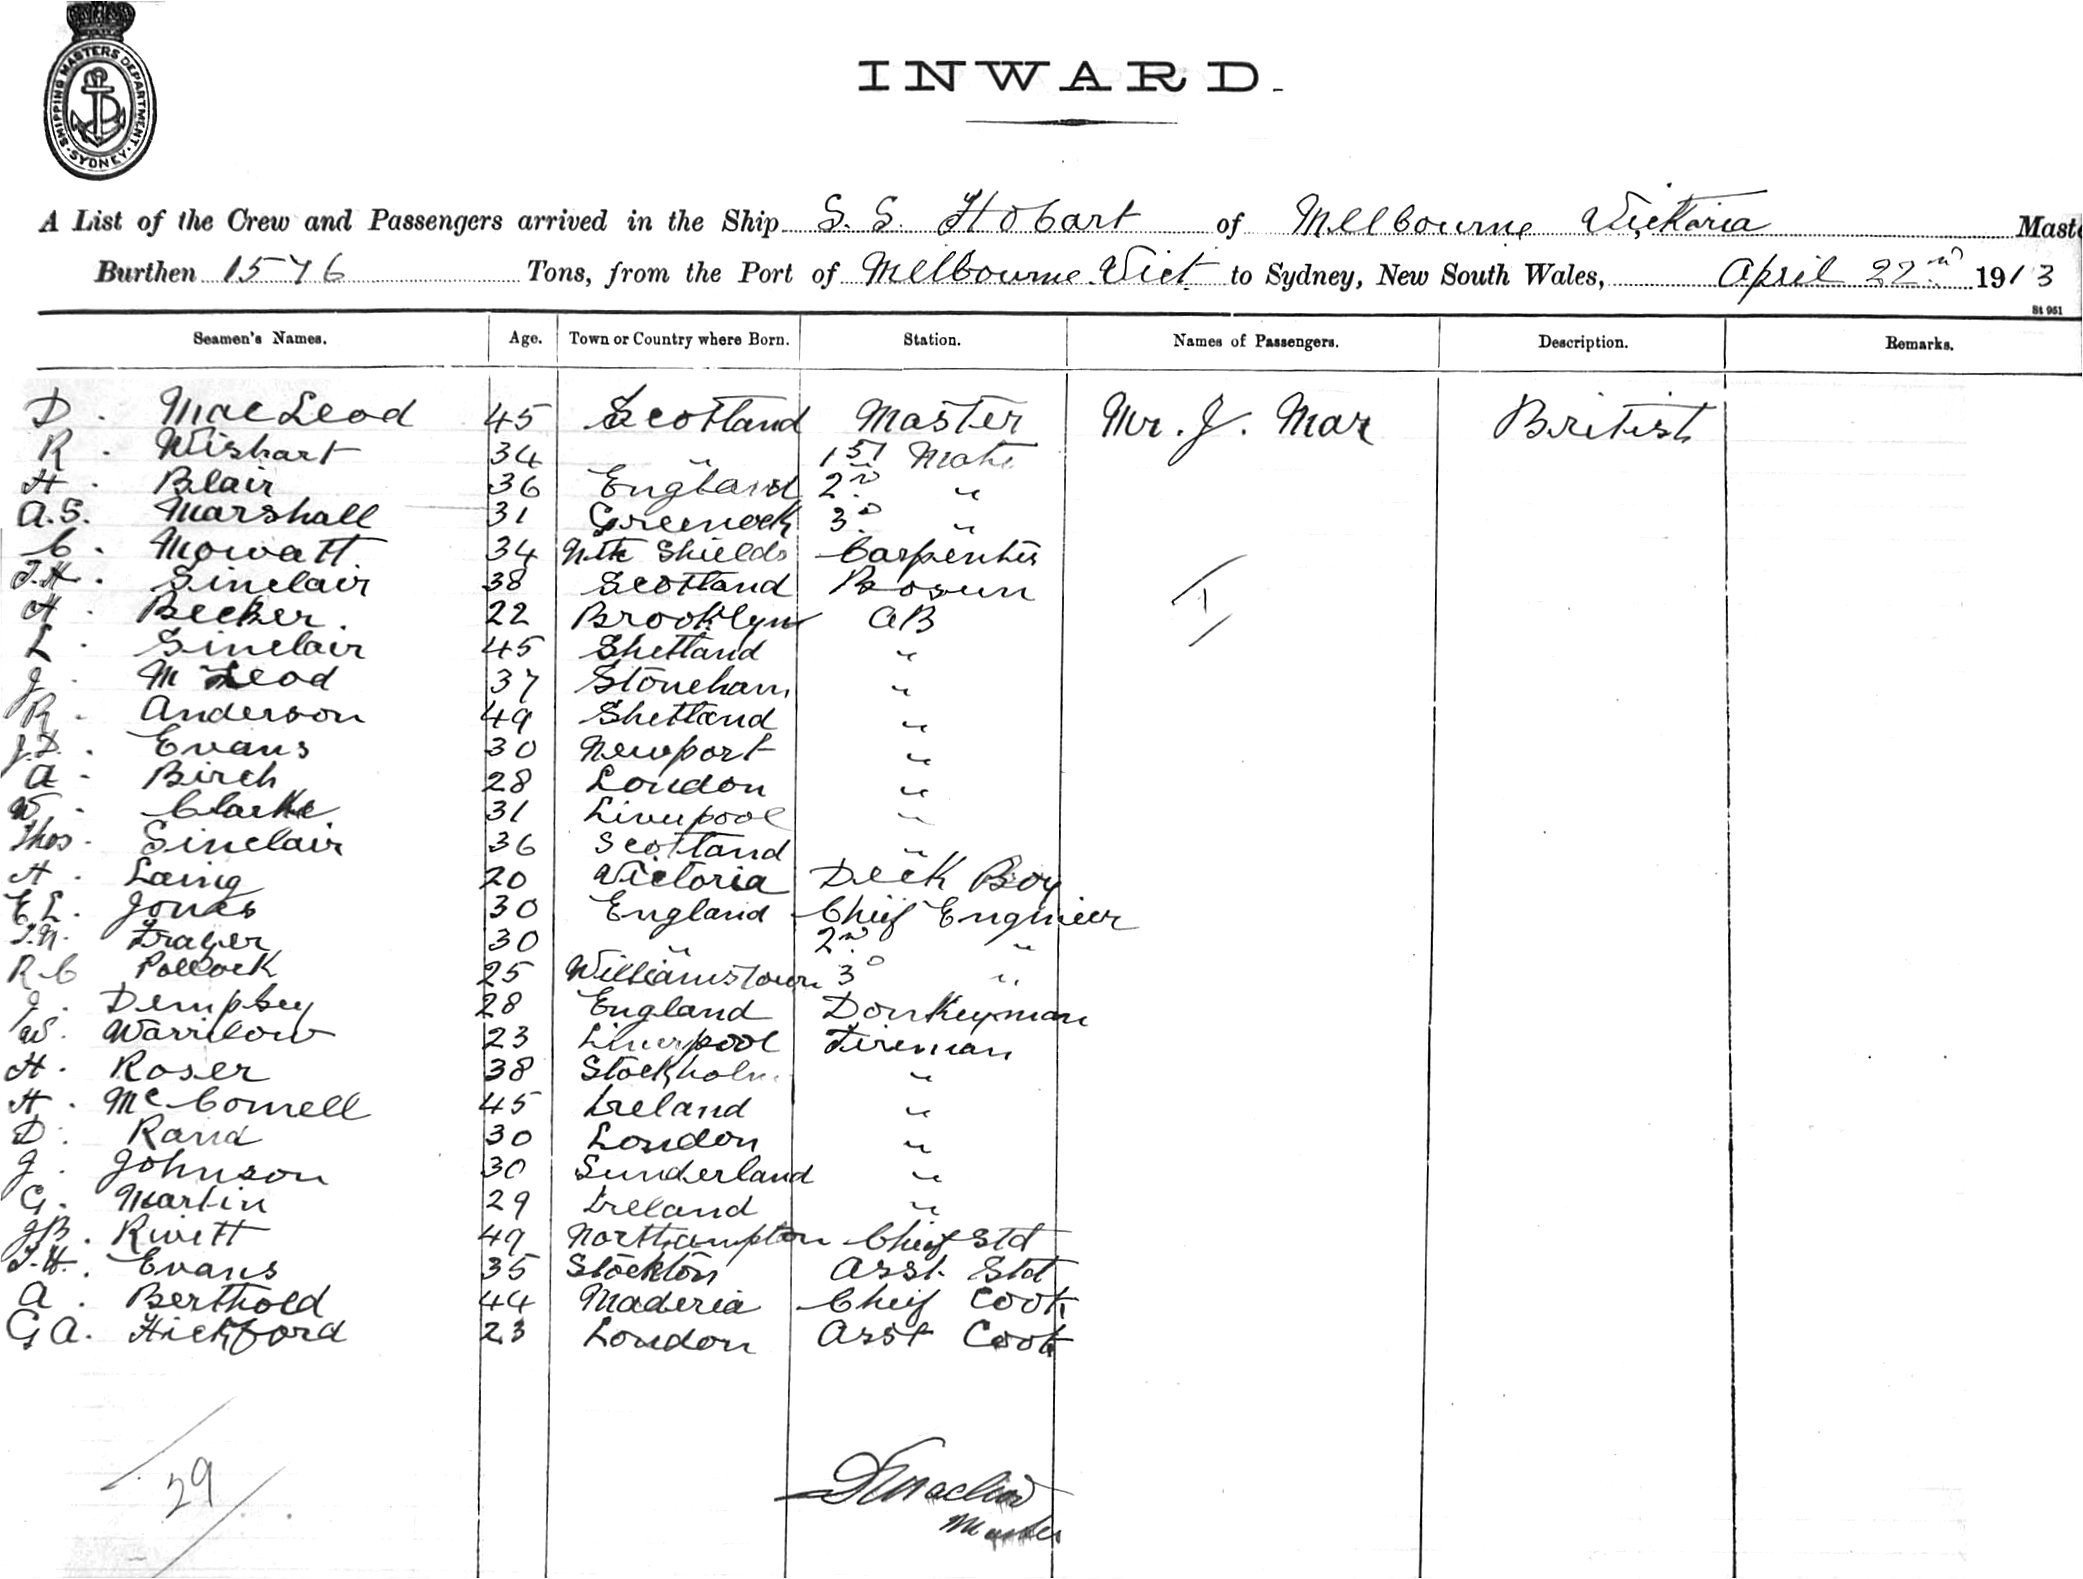 SHIPPING MASTERS DEPARTMENT. SYDNEY.
INWARD.
A List of the Crew and Passengers arrived in the Ship S.S. Hobart of Melbourne Victoria Maste
Burthen 1576 Tons, from the Port of Melbourne Vict to Sydney, New South Wales, April 22nd 1913
St 961
Seamen's Names. Age. Town or Country where Born. Station. Names of Passengers. Description. Remarks.
D. MacLeod 45 Scotland Master Mr. J. Mar British
R. Wishart 34 " 1st Mate
H. Blair 36 England 2nd "
A.S. Marshall 31 Greenock 3d "
C. Mowatt 34 Nth Shields Carpenter
J.H. Sinclair 38 Scotland Bosun
H. Becker. 22 Brooklyn AB
L. Sinclair 45 Shetland "
J. McLeod 37 Stoneham "
R. Anderson 49 Shetland "
J.D. Evans 30 Newport "
A. Birch 28 London "
W. Clarke 31 Liverpool "
Thos. Sinclair 36 Scotland "
H. Laing 20 Victoria Deck Boy
E.L. Jones 30 England Chief Engineer
30 " 2nd "
R C Pollock 25 Williamstown 3d "
J. Dempsey 28 England Donkeyman
W. Warrilow 23 Liverpool Fireman
H. Roser 38 Stockholm "
H. McConnell 45 Ireland "
D. Rand 30 London "
J. Johnson 30 Sunderland "
G. Martin 29 Ireland "
J.B. Rivett 49 Northampton Chief Std
T.H. Evans 35 Stockton Asst. Std
A. Berthold 44 Maderia Chief Cook
G A. Hickford 23 London Asst Cook
1
29
Master